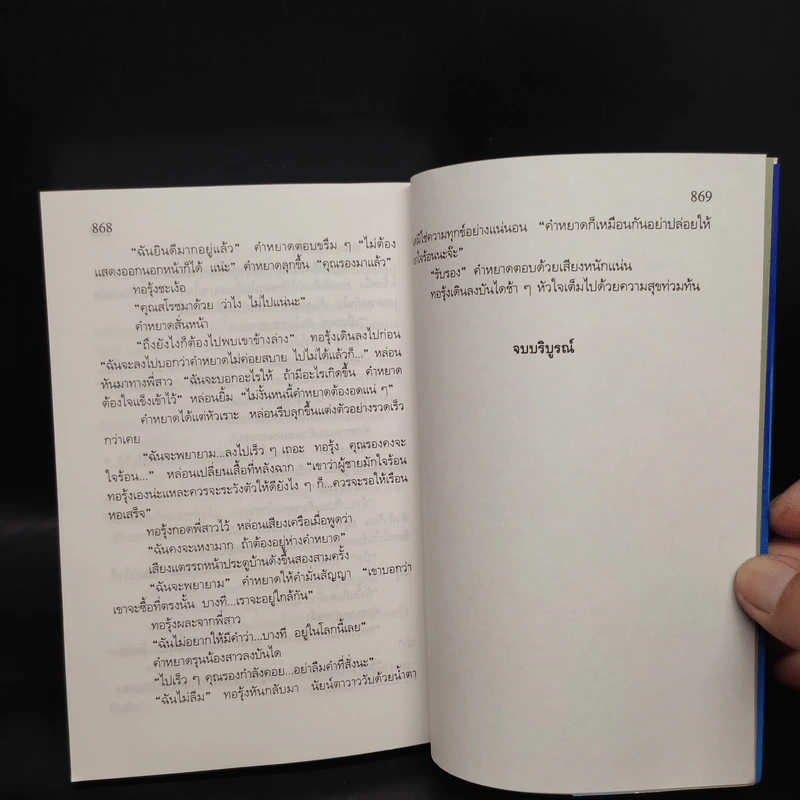 868
“ฉันยินดีมากอยู่แล้ว” คำหยาดตอบขรึม ๆ “ไม่ต้อง
แสดงออกนอกหน้าก็ได้ แน่ะ” คำหยาดลุกขึ้น “คุณรองมาแล้ว”
ทอรุ้งชะเง้อ
“คุณสโรชมาด้วย ว่าไง ไม่ไปแน่นะ”
คำหยาดสั่นหน้า
“ถึงยังไงก็ต้องไปพบเขาข้างล่าง” ทอรุ้งเดินลงไปก่อน
“ฉันจะลงไปบอกว่าคำหยาดไม่ค่อยสบาย ไปไม่ได้แล้วก็...” หล่อน
หันมาทางพี่สาว “ฉันจะบอกอะไรให้ ถ้ามีอะไรเกิดขึ้น คำหยาด
ต้องใจแข็งเข้าไว้” หล่อนยิ้ม “ไม่งั้นหนนี้คำหยาดต้องอดแน่ ๆ”
คำหยาดได้แต่หัวเราะ หล่อนรีบลุกขึ้นแต่งตัวอย่างรวดเร็ว
กว่าเคย
“ฉันจะพยายาม...ลงไปเร็ว ๆ เถอะ ทอรุ้ง คุณรองคงจะ
ใจร้อน...” หล่อนเปลี่ยนเสื้อที่หลังฉาก “เขาว่าผู้ชายมักใจร้อน
ทอรุ้งเองน่ะแหละควรจะระวังตัวให้ดียังไง ๆ ก็...ควรจะรอให้เรือน
หอเสร็จ”
ทอรุ้งกอดพี่สาวไว้ หล่อนเสียงเครือเมื่อพูดว่า
“ฉันคงจะเหงามาก ถ้าต้องอยู่ห่างคำหยาด”
เสียงแตรรถหน้าประตูบ้านดังขึ้นสองสามครั้ง
“ฉันจะพยายาม” คำหยาดให้คำมั่นสัญญา “เขาบอกว่า
เขาจะซื้อที่ตรงนั้น บางที...เราจะอยู่ใกล้กัน”
ทอรุ้งผละจากพี่สาว
“ฉันไม่อยากให้มีคำว่า...บางที อยู่ในโลกนี้เลย”
คำหยาดรุนน้องสาวลงบันได
“ไปเร็ว ๆ คุณรองกำลังคอย...อย่าลืมคำที่สั่งนะ”
“ฉันไม่ลืม” ทอรุ้งหันกลับมา นัยน์ตาวาววับด้วยน้ำตา
869
ใช่ความทุกข์อย่างแน่นอน “คำหยาดก็เหมือนกันอย่าปล่อยให้
ใจร้อนนะจ๊ะ”
“รับรอง” คำหยาดตอบด้วยเสียงหนักแน่น
ทอรุ้งเดินลงบันไดช้า ๆ หัวใจเต็มไปด้วยความสุขท่วมท้น
จบบริบูรณ์